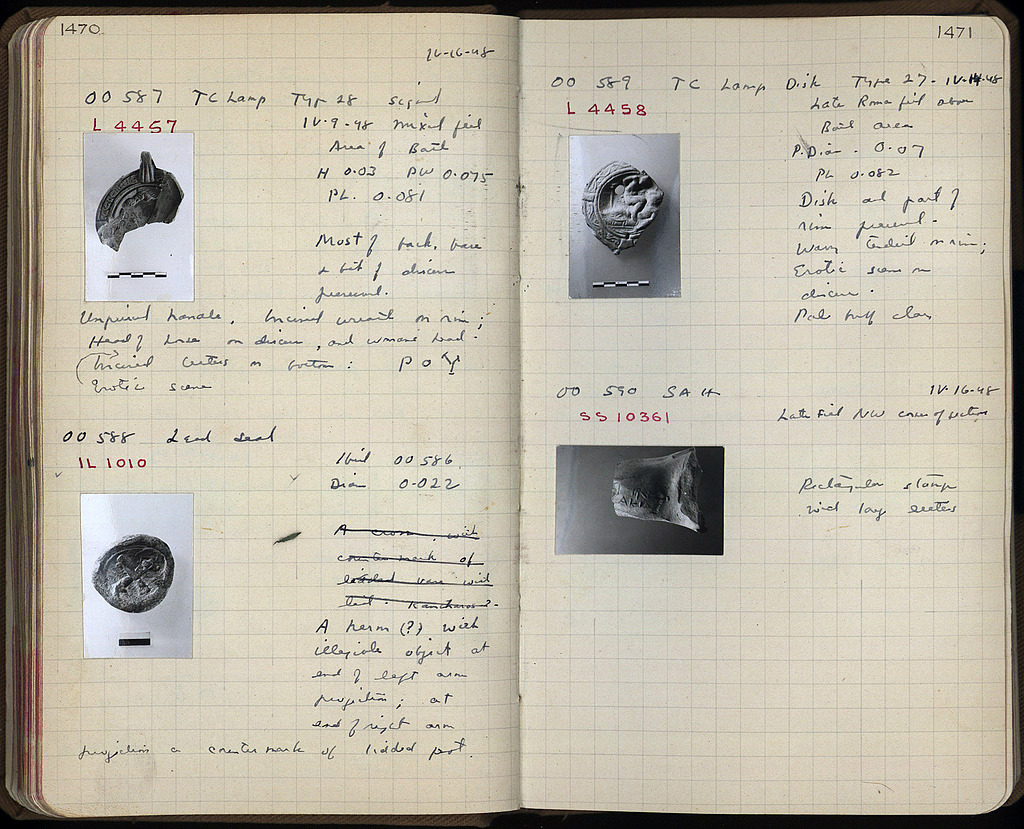 1470
IV-16-48
OO 587 TC Lamp Type 28 signed
L 4457
IV-9-48 mixed fill
Area of Bath
H 0.03 PW 0.075
PL. 0.081
Most of back, base
& bit of discus
preserved.
Unpierced handle. Incised wreath on rim;
Head of horse on discus, and woman's head.
Incised letters on bottom: P O
Erotic scene
OO 588 Lead seal
IL 1010
Ibid OO 586
Diam 0.022
A cross with
counter mark of
lidded vase with
Kantharos?
A herm (?) with
illegible object at
end of left arm
projection; at
end of right arm
projection a counter mark of lidded pot.
1471
OO 589 TC Lamp Disk Type 27 - IV-14-48
L 4458
Late Roman fill above
Bath area
P. Diam. 0.07
PL 0.082
Disk and part of
rim preserved.
Wavy tendril on rim;
Erotic scene on
discus.
Pale buff clay
OO 590 SAH IV-16-48
SS 10361
Late fill NW corner of section
Rectangular stamp
with large letters